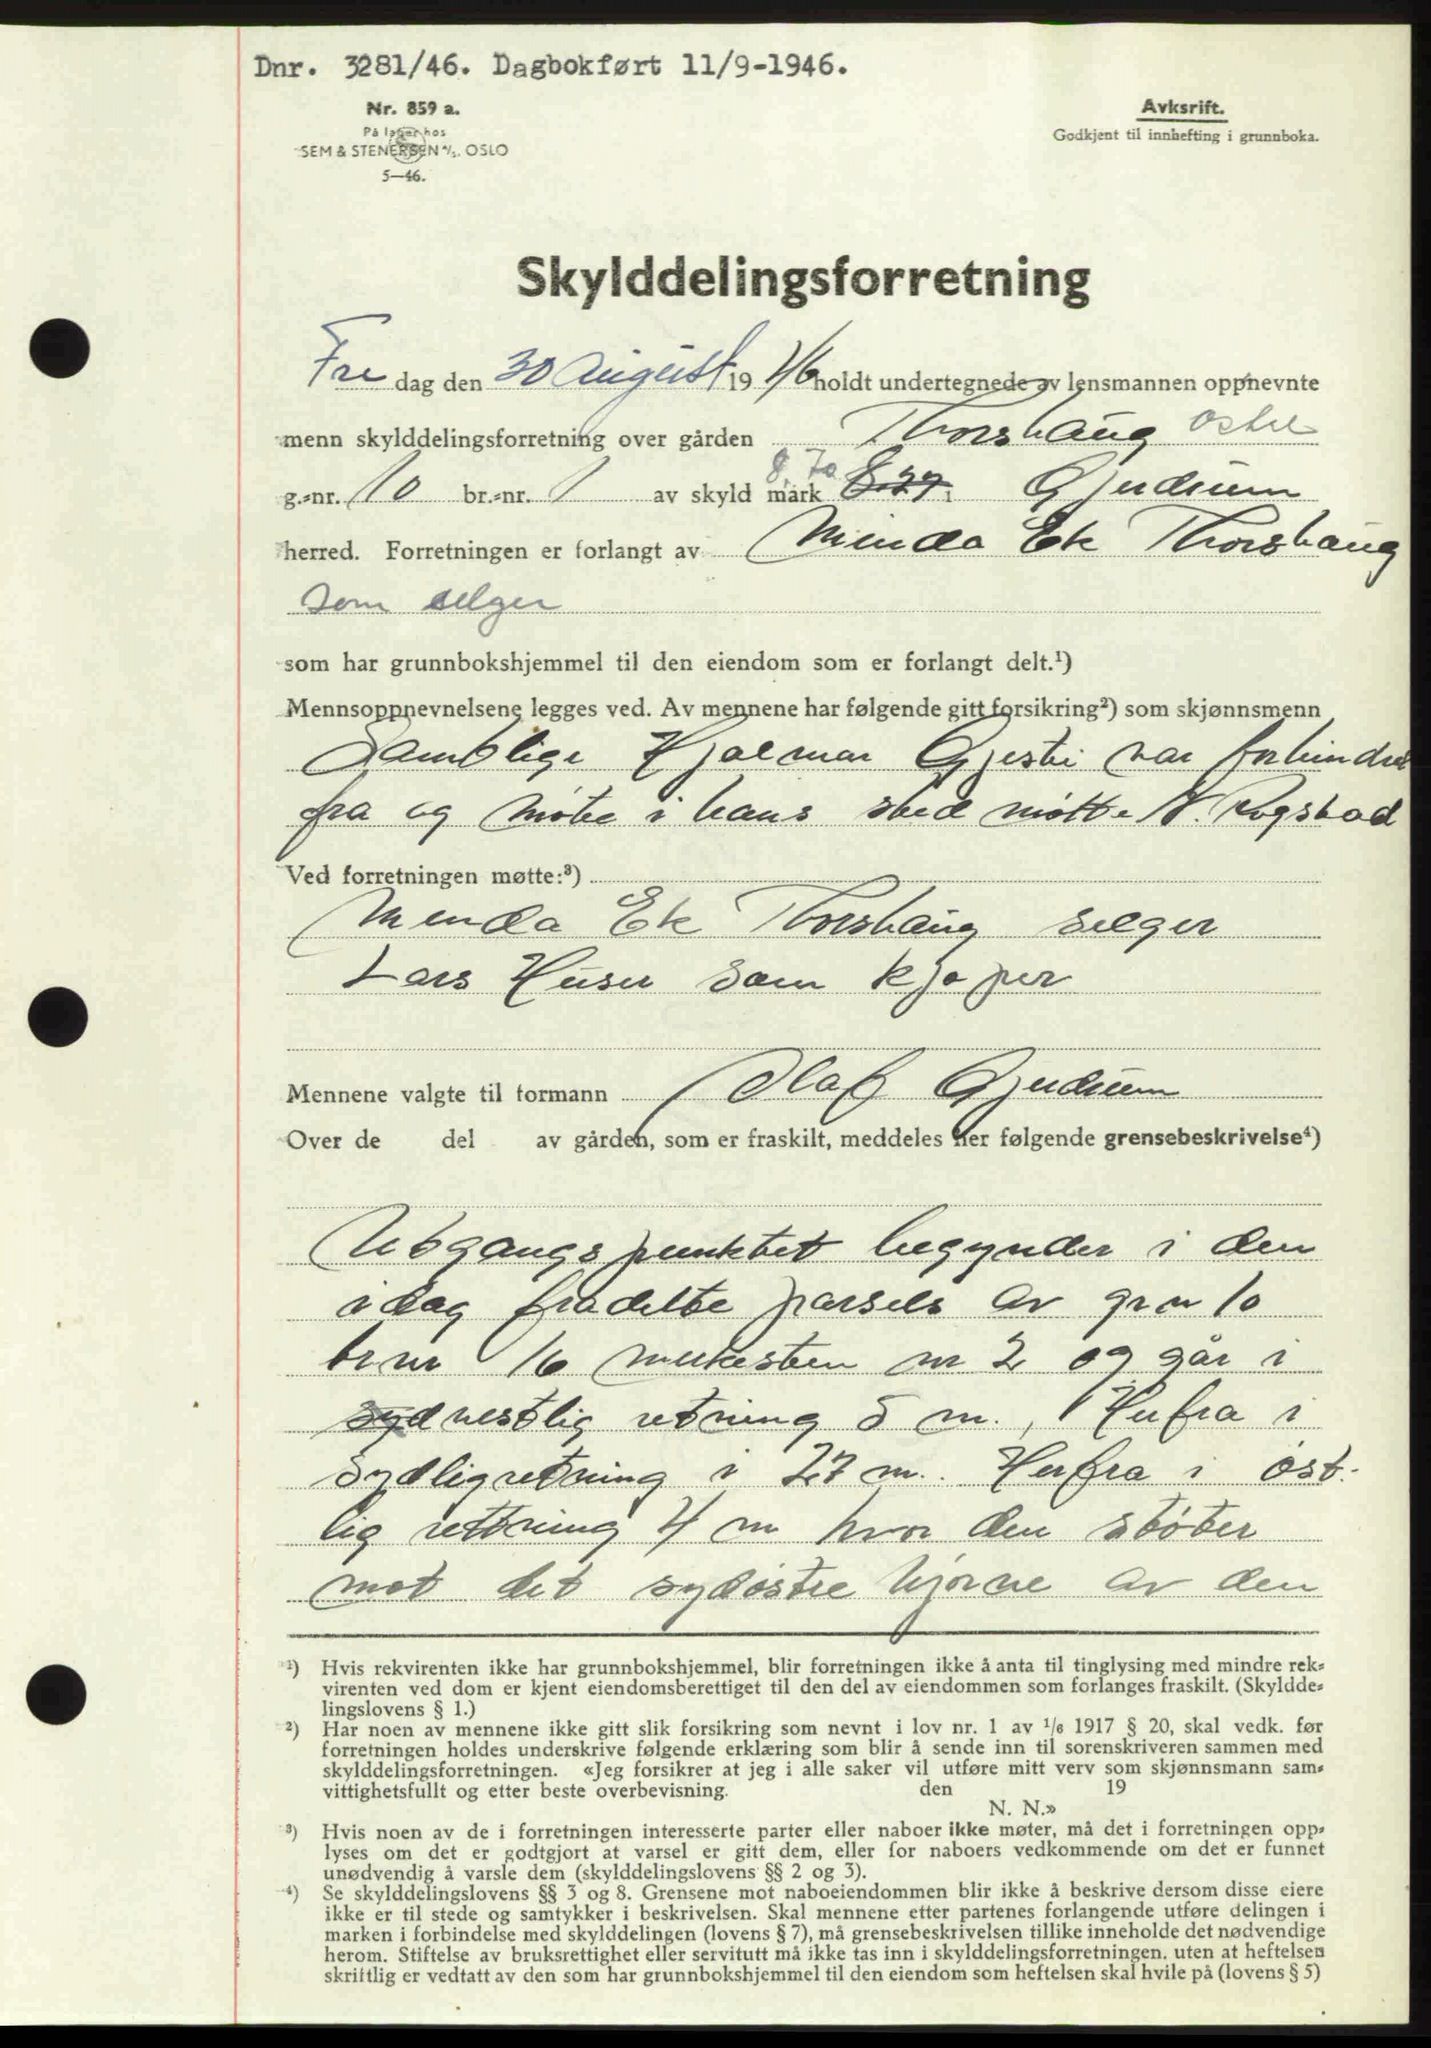 Dnr. 3281/46. Dagbokført 11/9-1946.
Nr. 859 a.
På lager hos
SEM & STENERSEN A/S, OSLO
5—46.
Avksrift.
Godkjent til innhefting i grunnboka.
Skylddelingsforretning
Fre dag den 30 August 19 46 holdt undertegnede av lensmannen oppnevnte
menn skylddelingsforretning over gården Thorshaug østre
g.-nr. 10 br.-nr. 1 av skyld mark 8.70 8.27 i Gjerdrum
herred. Forretningen er forlangt av Minda Ek Thorshaug
som selger
som har grunnbokshjemmel til den eiendom som er forlangt delt.¹)
Mennsoppnevnelsene legges ved. Av mennene har følgende gitt forsikring²) som skjønnsmenn
Samtlige Hjalmar Gjesti var forhindret
fra og møte i hans sted møtte N. Rogstad
Ved forretningen møtte:³)
Minda Ek Thorshaug selger
Lars Huser som kjøper
Mennene valgte til formann Olaf Gjerdrum
Over de del av gården, som er fraskilt, meddeles her følgende grensebeskrivelse⁴)
Utgangspunktet begynder i den
idag fradelte parsels av grnr 10
brnr 16 merkesten nr 2 og går i
sydvestlig retning 5 m. Herfra i
sydlig retning i 27 m. Herfra i øst-
lig retning 4 m hvor den støter
mot det sydøstre hjørne av den
¹) Hvis rekvirenten ikke har grunnbokshjemmel, blir forretningen ikke å anta til tinglysing med mindre rek-
virenten ved dom er kjent eiendomsberettiget til den del av eiendommen som forlanges fraskilt. (Skyldde-
lingslovens § 1.)
²) Har noen av mennene ikke gitt slik forsikring som nevnt i lov nr. 1 av 1/6 1917 § 20, skal vedk. før
forretningen holdes underskrive følgende erklæring som blir å sende inn til sorenskriveren sammen med
skylddelingsforretningen. «Jeg forsikrer at jeg i alle saker vil utføre mitt verv som skjønnsmann sam-
vittighetsfullt og etter beste overbevisning. den 19
N. N.»
³) Hvis noen av de i forretningen interesserte parter eller naboer ikke møter, må det i forretningen opp-
lyses om det er godtgjort at varsel er gitt dem, eller for naboers vedkommende om det er funnet
unødvendig å varsle dem (skylddelingslovens §§ 2 og 3).
⁴) Se skylddelingslovens §§ 3 og 8. Grensene mot naboeiendommen blir ikke å beskrive dersom disse eiere
ikke er til stede og samtykker i beskrivelsen. Skal mennene etter partenes forlangende utføre delingen i
marken i forbindelse med skylddelingen (lovens § 7), må grensebeskrivelsen tillike inneholde det nødvendige
herom. Stiftelse av bruksrettighet eller servitutt må ikke tas inn i skylddelingsforretningen, uten at heftelsen
skriftlig er vedtatt av den som har grunnbokshjemmel til den eiendom som heftelsen skal hvile på (lovens § 5)